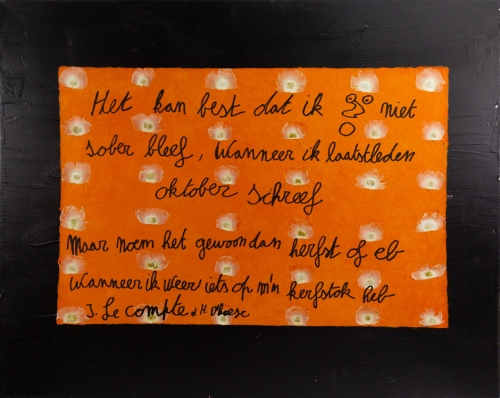 Het kan best dat ik zo niet
sober bleef, wanneer ik laatstleden
oktober schreef
Maar noem het gewoon dan herfst of eb
wanneer ik weer iets op m'n kerfstok heb
J. Le Compte & H.